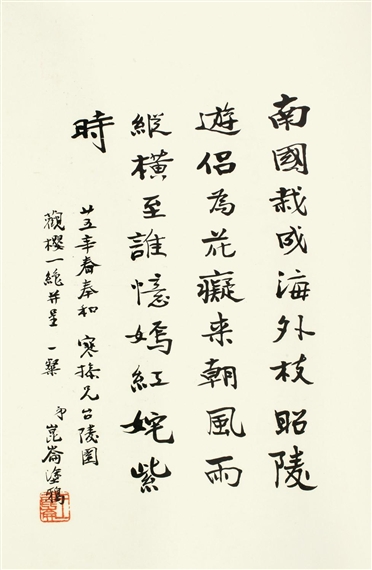 南國栽成海外枝昭陵
遊侶為花癡来朝風雨
縱橫至誰憶嫣紅姹紫
時
廿五年春奉和 寒操兄台陵園
觀櫻一絕并呈 一粲 弟崑崙塗鴉